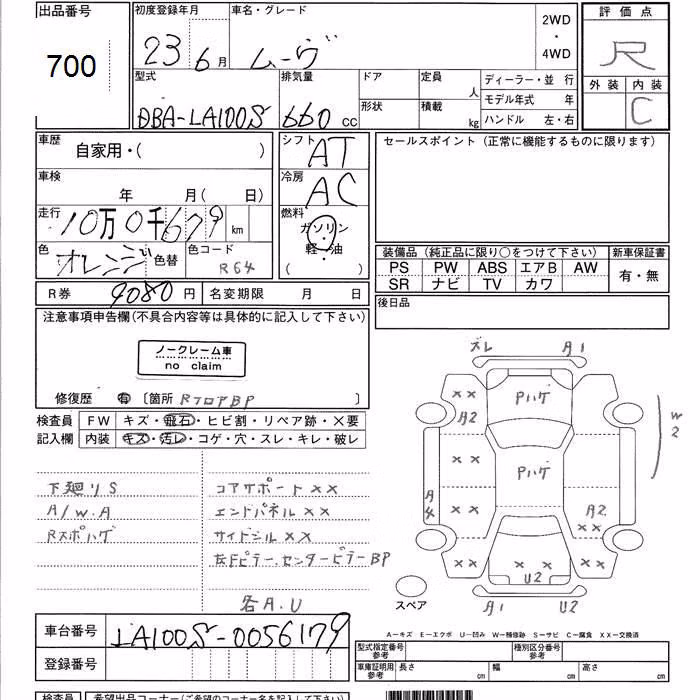 出品番号 初度登録年月 車名・グレード 2WD・4WD 評価点
700 23 6月 ムーヴ R
型式 排気量 ドア 定員 人 ディーラー・並 行 外装 内装
形状 積載 kg モデル年式 年 C
DBA-LA100S 660 cc ハンドル 左・右
車歴 自家用・( ) シフト AT セールスポイント (正常に機能するものに限ります)
車検 年 月( 日) 冷房 AC
走行 10万0千679 km 燃料 ガソリン・軽・油 ( )
色 オレンジ 色替 色コード R64
装備品 (純正品に限り○をつけて下さい) 新車保証書
PS PW ABS エアB AW 有・無
SR ナビ TV カワ
R券 9080 円 名変期限 月 日 後日品
注意事項申告欄(不具合内容等は具体的に記入して下さい)
ノークレーム車
no claim
修復歴 有 〔箇所 RフロアBP
検査員 FW キズ・飛石・ヒビ割・リペア跡・×要
記入欄 内装 キズ・汚レ・コゲ・穴・スレ・キレ・破レ
ズレ A1
Pハゲ
A2
W2
Pハゲ
A4
A2
U2
A1 U2
スペア
下廻りS コアサポート××
A/W.A エンドパネル××
Rスポハゲ サイドシル××
左Fピラー.センターピラーBP
各A.U
A−キズ E−エクボ U−凹み W−補修跡 S−サビ C−腐食 XX−交換済
車台番号 LA100S-0056179
登録番号
型式指定番号 参考 種別区分番号 参考
車庫証明用 参考 長さ cm 幅 cm 高さ cm
検査員 希望出品コーナー(ご希望のコーナー名を記入下さい)